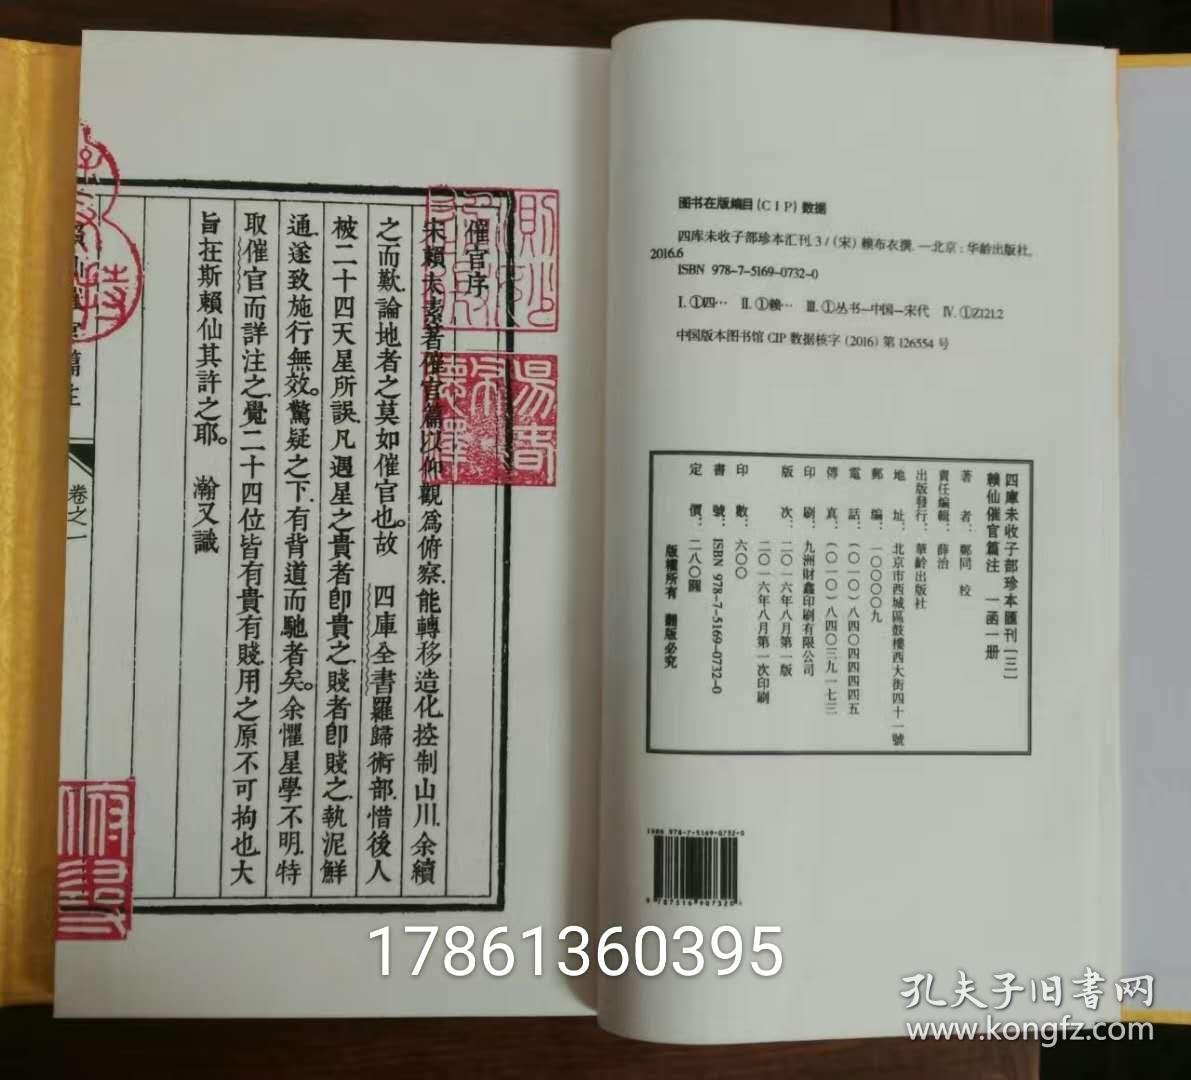 催官序
宋賴太素著催官篇以仰觀爲俯察.能轉移造化控制山川.余續
之而歎.論地者之莫如催官也。故 四庫全書羅歸術部.惜後人
被二十四天星所誤.凡遇星之貴者卽貴之.賤者卽賤之.執泥鮮
通.遂致施行無效。驚疑之下.有背道而馳者矣。余懼星學不明.特
取催官而詳注之.覺二十四位皆有貴有賤.用之原不可拘也.大
旨在斯賴仙其許之耶。 瀚又識
卷之一
图书在版编目(CIP)数据
四库未收子部珍本汇刊.3/(宋)赖布衣撰.—北京:华龄出版社,
2016.6
ISBN 978-7-5169-0732-0
Ⅰ.①四… Ⅱ.①赖… Ⅲ.①丛书—中国—宋代 Ⅳ.①Z121.2
中国版本图书馆CIP数据核字(2016)第126554号
四庫未收子部珍本匯刊(三)
賴仙催官篇注 一函一册
著者:鄭同 校
責任編輯:薛治
出版發行:華齡出版社
地址:北京市西城區鼓樓西大街四十一號
郵編:一〇〇〇〇九
電話:(〇一〇)八四〇四四四四五
傳真:(〇一〇)八四〇三九一七三
印刷:九洲財鑫印刷有限公司
版次:二〇一六年八月第一版
二〇一六年八月第一次印刷
印數:六〇〇
書號:ISBN 978-7-5169-0732-0
定價:二八〇圓
版權所有 翻版必究
ISBN 978-7-5169-0732-0
9 787516 907320 >
17861360395
孔夫子旧書网
www.kongfz.com